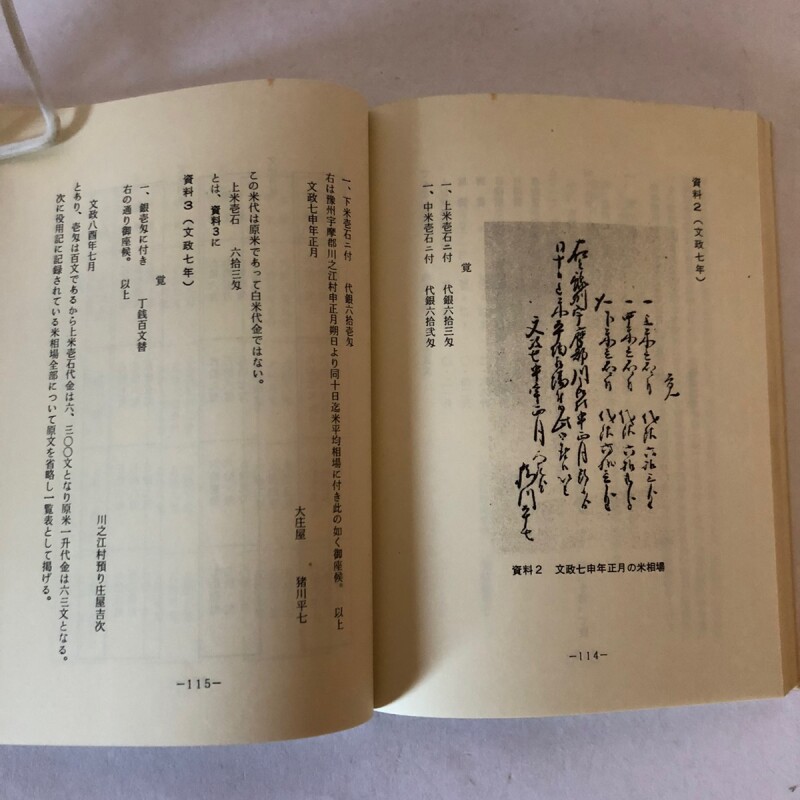 資料２（文政七年）
資料２　文政七申年正月の米相場
覚
一、上米壱石ニ付　代銀六拾三匁
一、中米壱石ニ付　代銀六拾弐匁
―114―
一、下米壱石ニ付　代銀六拾壱匁
右は豫州宇摩郡川之江村申正月朔日より同十日迄米平均相場に付き此の如く御座候。　以上
文政七申年正月
大庄屋　猪川平七
この米代は原米であって白米代金ではない。
上米壱石　六拾三匁
とは、資料３に
資料３（文政七年）
覚
一、銀壱匁に付き　丁銭百文替
右の通り御座候。　以上
文政八酉年七月
川之江村預り庄屋吉次
とあり、壱匁は百文であるから上米壱石代金は六、三〇〇文となり原米一升代金は六三文となる。
次に役用記に記録されている米相場全部について原文を省略し一覧表として掲げる。
―115―